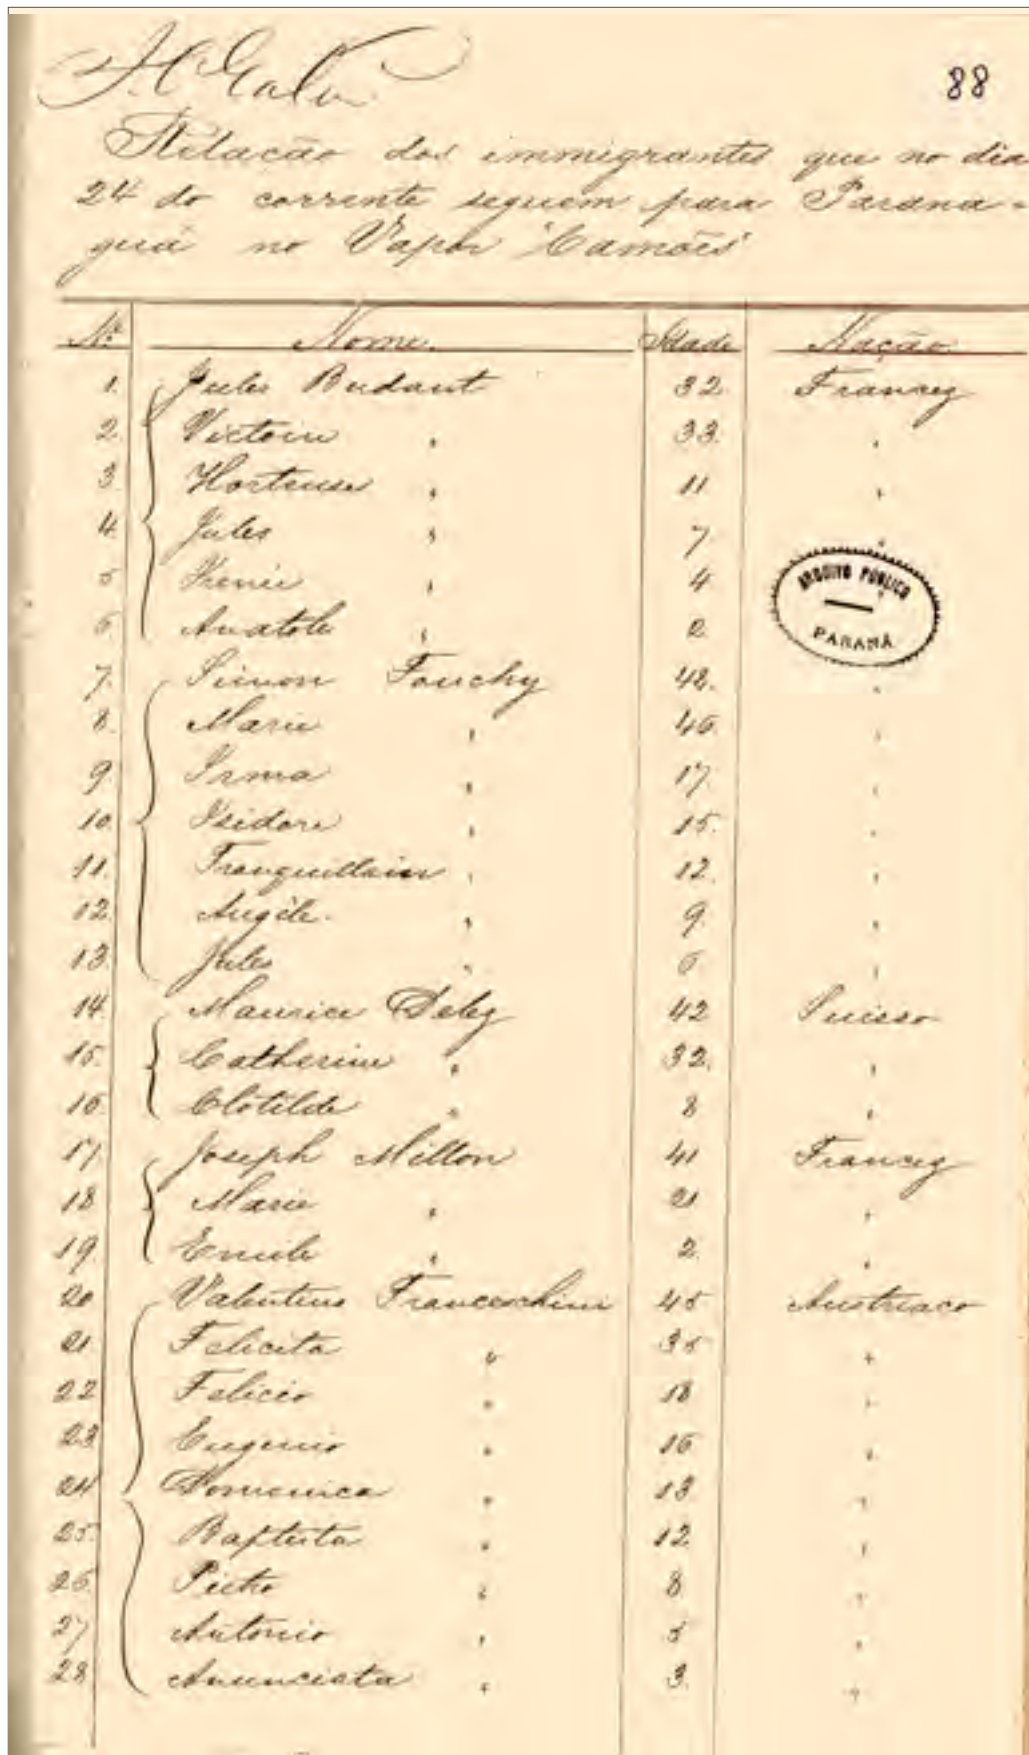 88
Relação dos immigrantes que no dia
24 do corrente seguem para Parana=
guá no Vapor "Camões"
Nº Nome. Idade Nação.
1. Jules Budant 32. Francez
2. Victoire " 33. "
3. Hortense " 11 "
4. Jules " 7 "
5 Irenée " 4 "
6. Anatole " 2
ARCHIVO PUBLICO
PARANÁ
7. Simon Fouchy 42. "
8. Marie " 46. "
9. Irma " 17. "
10. Isidore " 15. "
11. Tranquillain " 12. "
12. Angéle. " 9. "
13. Jules " 6. "
14. Maurice 42 Suisso
15. Catherine " 32. "
16. Clotilde " 8 "
17. Joseph Millon 41 Francez
18 Marie " 21 "
19. Emile " 2. "
20 Valentino Franceschini 45 Austriaco
21 Felicita " 35 "
22 Felicio " 18 "
23 Eugenio " 16 "
24 Domenica " 13 "
25. Baptista " 12. "
26. Pietro " 8 "
27 Antonio " 5 "
28 Anunciata " 3. "